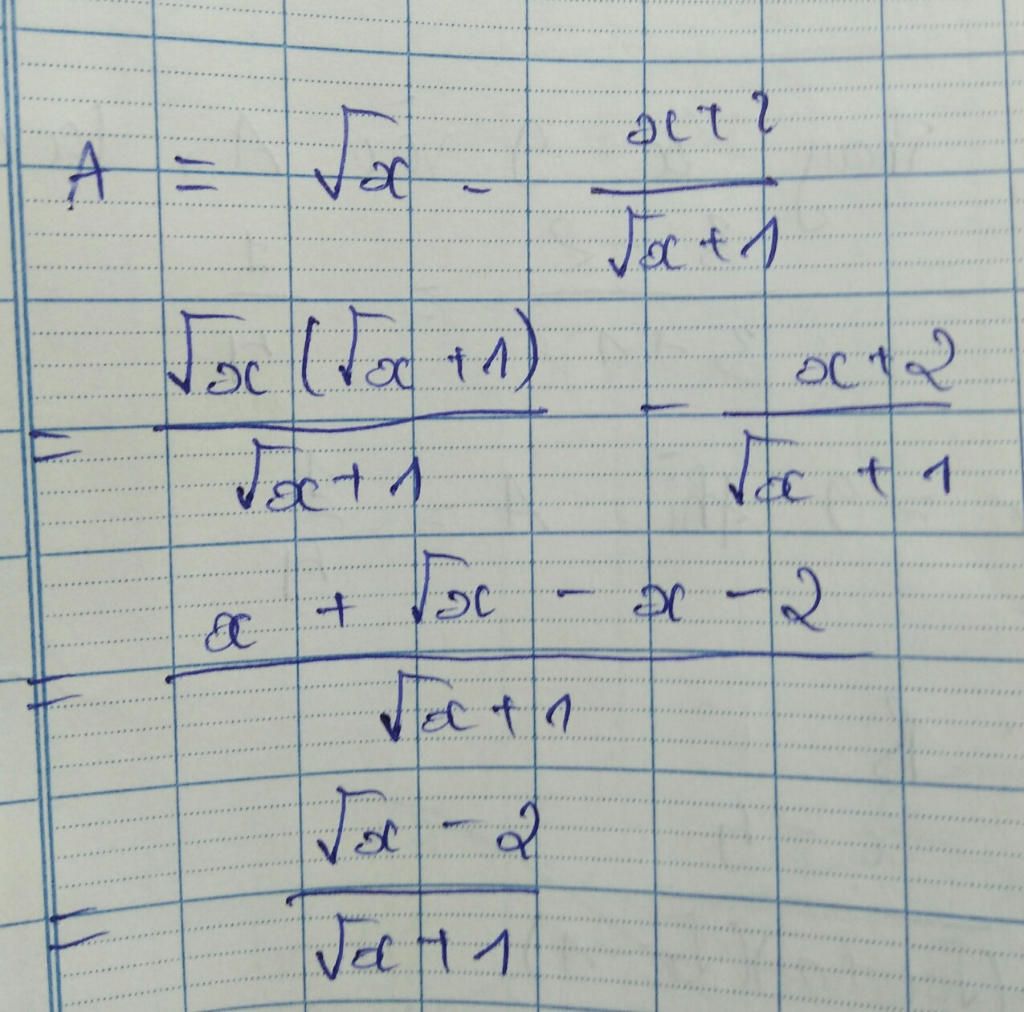 A = √x - (x+2)/(√x+1)
= √x(√x+1)/(√x+1) - (x+2)/(√x+1)
= (x + √x - x - 2)/(√x+1)
= (√x - 2)/(√x+1)